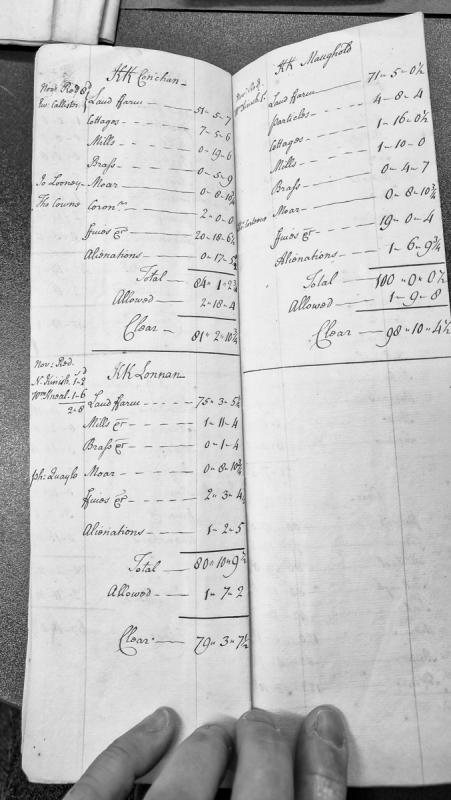 KK Conchan
Nov: Red 8d
Ew: Callister Laud ffarm 51-5-7
Cottages 7-5-6
Mills 0-19-6
Brass 0-5-9
Jo Looney Moar 0-8-10¾
Tho Cowne Coronrs 2-0-0
ffines &c 20-18-6½
Alienations 0-17-5½
Total 84-1-2¾
Allowed 2-18-4
Clear 81-2-10¾
KK Lonnan
Nov: Red
s d
N: Kinish. 1-2
Wm Kneal. 1-6
2-8
Laud ffarm 75-3-5½
Mills &c 1-11-4
Brass &c 0-1-4
Jph: Quayle Moar 0-8-10¾
ffines &c 2-3-4½
Alienations 1-2-5
Total 80-10-9½
Allowed 1-7-2
Clear 79-3-7½
KK Maughold
Laud ffarm 71-5-0½
Particles 4-8-4
Cottages 1-16-0½
Mills 1-10-0
Brass 0-4-7
Moar 0-8-10¾
ffines &c 19-0-4
Alienations 1-6-9¾
Total 100-0-0½
Allowed 1-9-8
Clear 98-10-4½